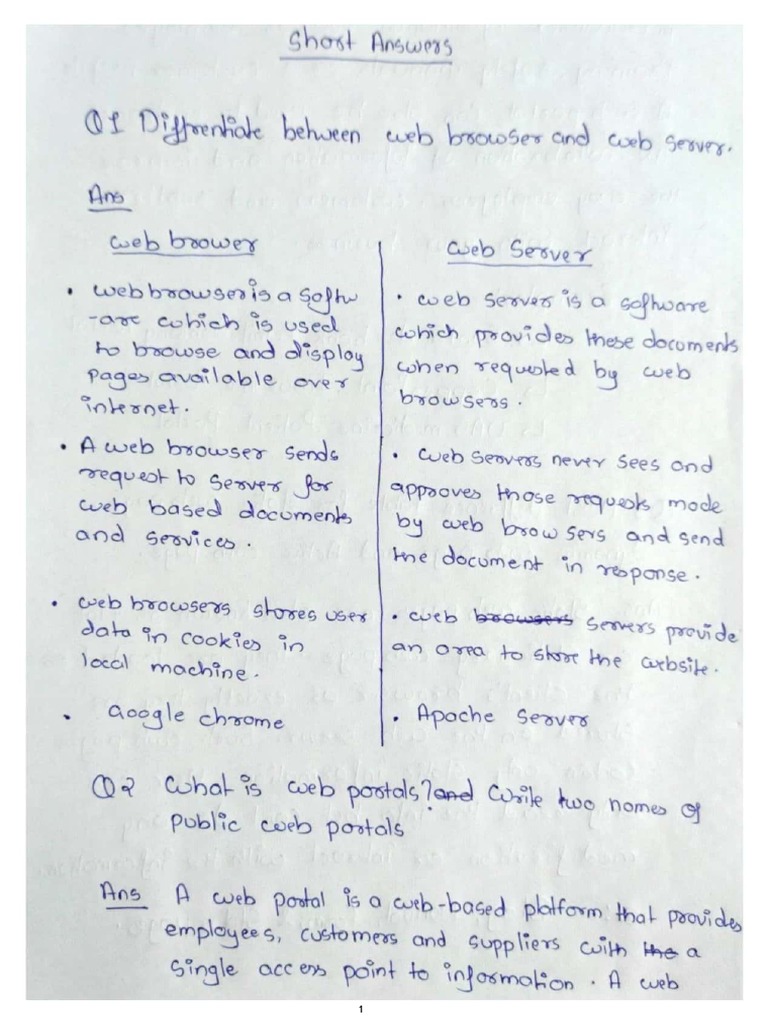 Short Answers
Q1 Diffrentiate between web browser and web server.
Ans
web brower
• web browser is a softw
-are which is used
to browse and display
pages available over
internet.
• A web browser sends
request to server for
web based documents
and services.
• web browsers stores user
data in cookies in
local machine.
• Google chrome
web Server
• web server is a software
which provides these documents
when requested by web
browsers.
• web servers never sees and
approves those requests made
by web browsers and send
the document in response.
• web browsers servers provide
an area to store the website.
• Apache Server
Q2 What is web portals? and Write two names of
public web portals
Ans A web portal is a web-based platform that provides
employees, customers and suppliers with the a
single access point to information. A web
1